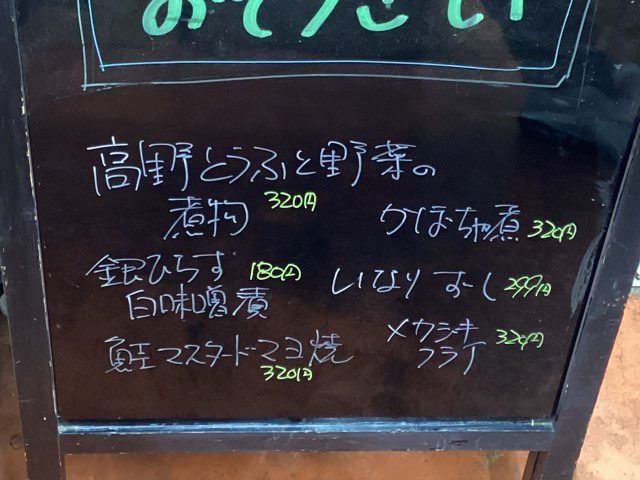 おそうざい
高野とうふと野菜の
煮物 320円
かぼちゃ煮 320円
銀ひらす 180円
白味噌漬
いなりずし 299円
鮭マスタードマヨ焼
320円
メカジキ 320円
フライ